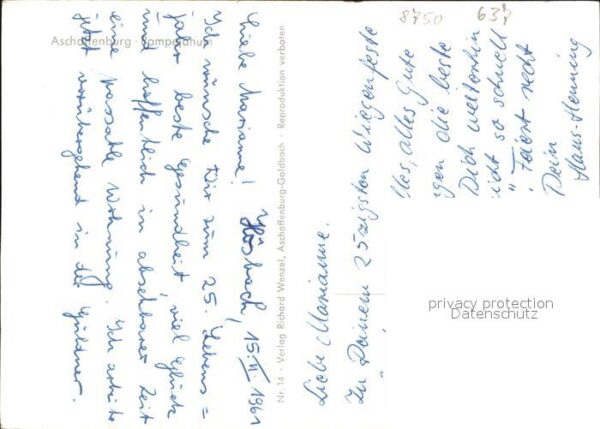 Aschaffenburg - Pompejanum
Hösbach, 15.II.1961
Liebe Marianne!
Ich wünsche Dir zum 25. Lebens=
jahr beste Gesundheit, viel Glück
und hoffentlich in absehbarer Zeit
eine passable Wohnung. Ich arbeite
jetzt vorübergehend in der Güldner.
Nr. 14 - Verlag Richard Wenzel, Aschaffenburg-Goldbach - Reproduktion verboten
Liebe Marianne.
Zu Deinem 25zigsten Wiegenfeste
alles, alles Gute
gen die beste
Dich weiterhin
icht so schnell
" Feiert recht
Dein
Hans-Henning
8750
637
privacy protection
Datenschutz